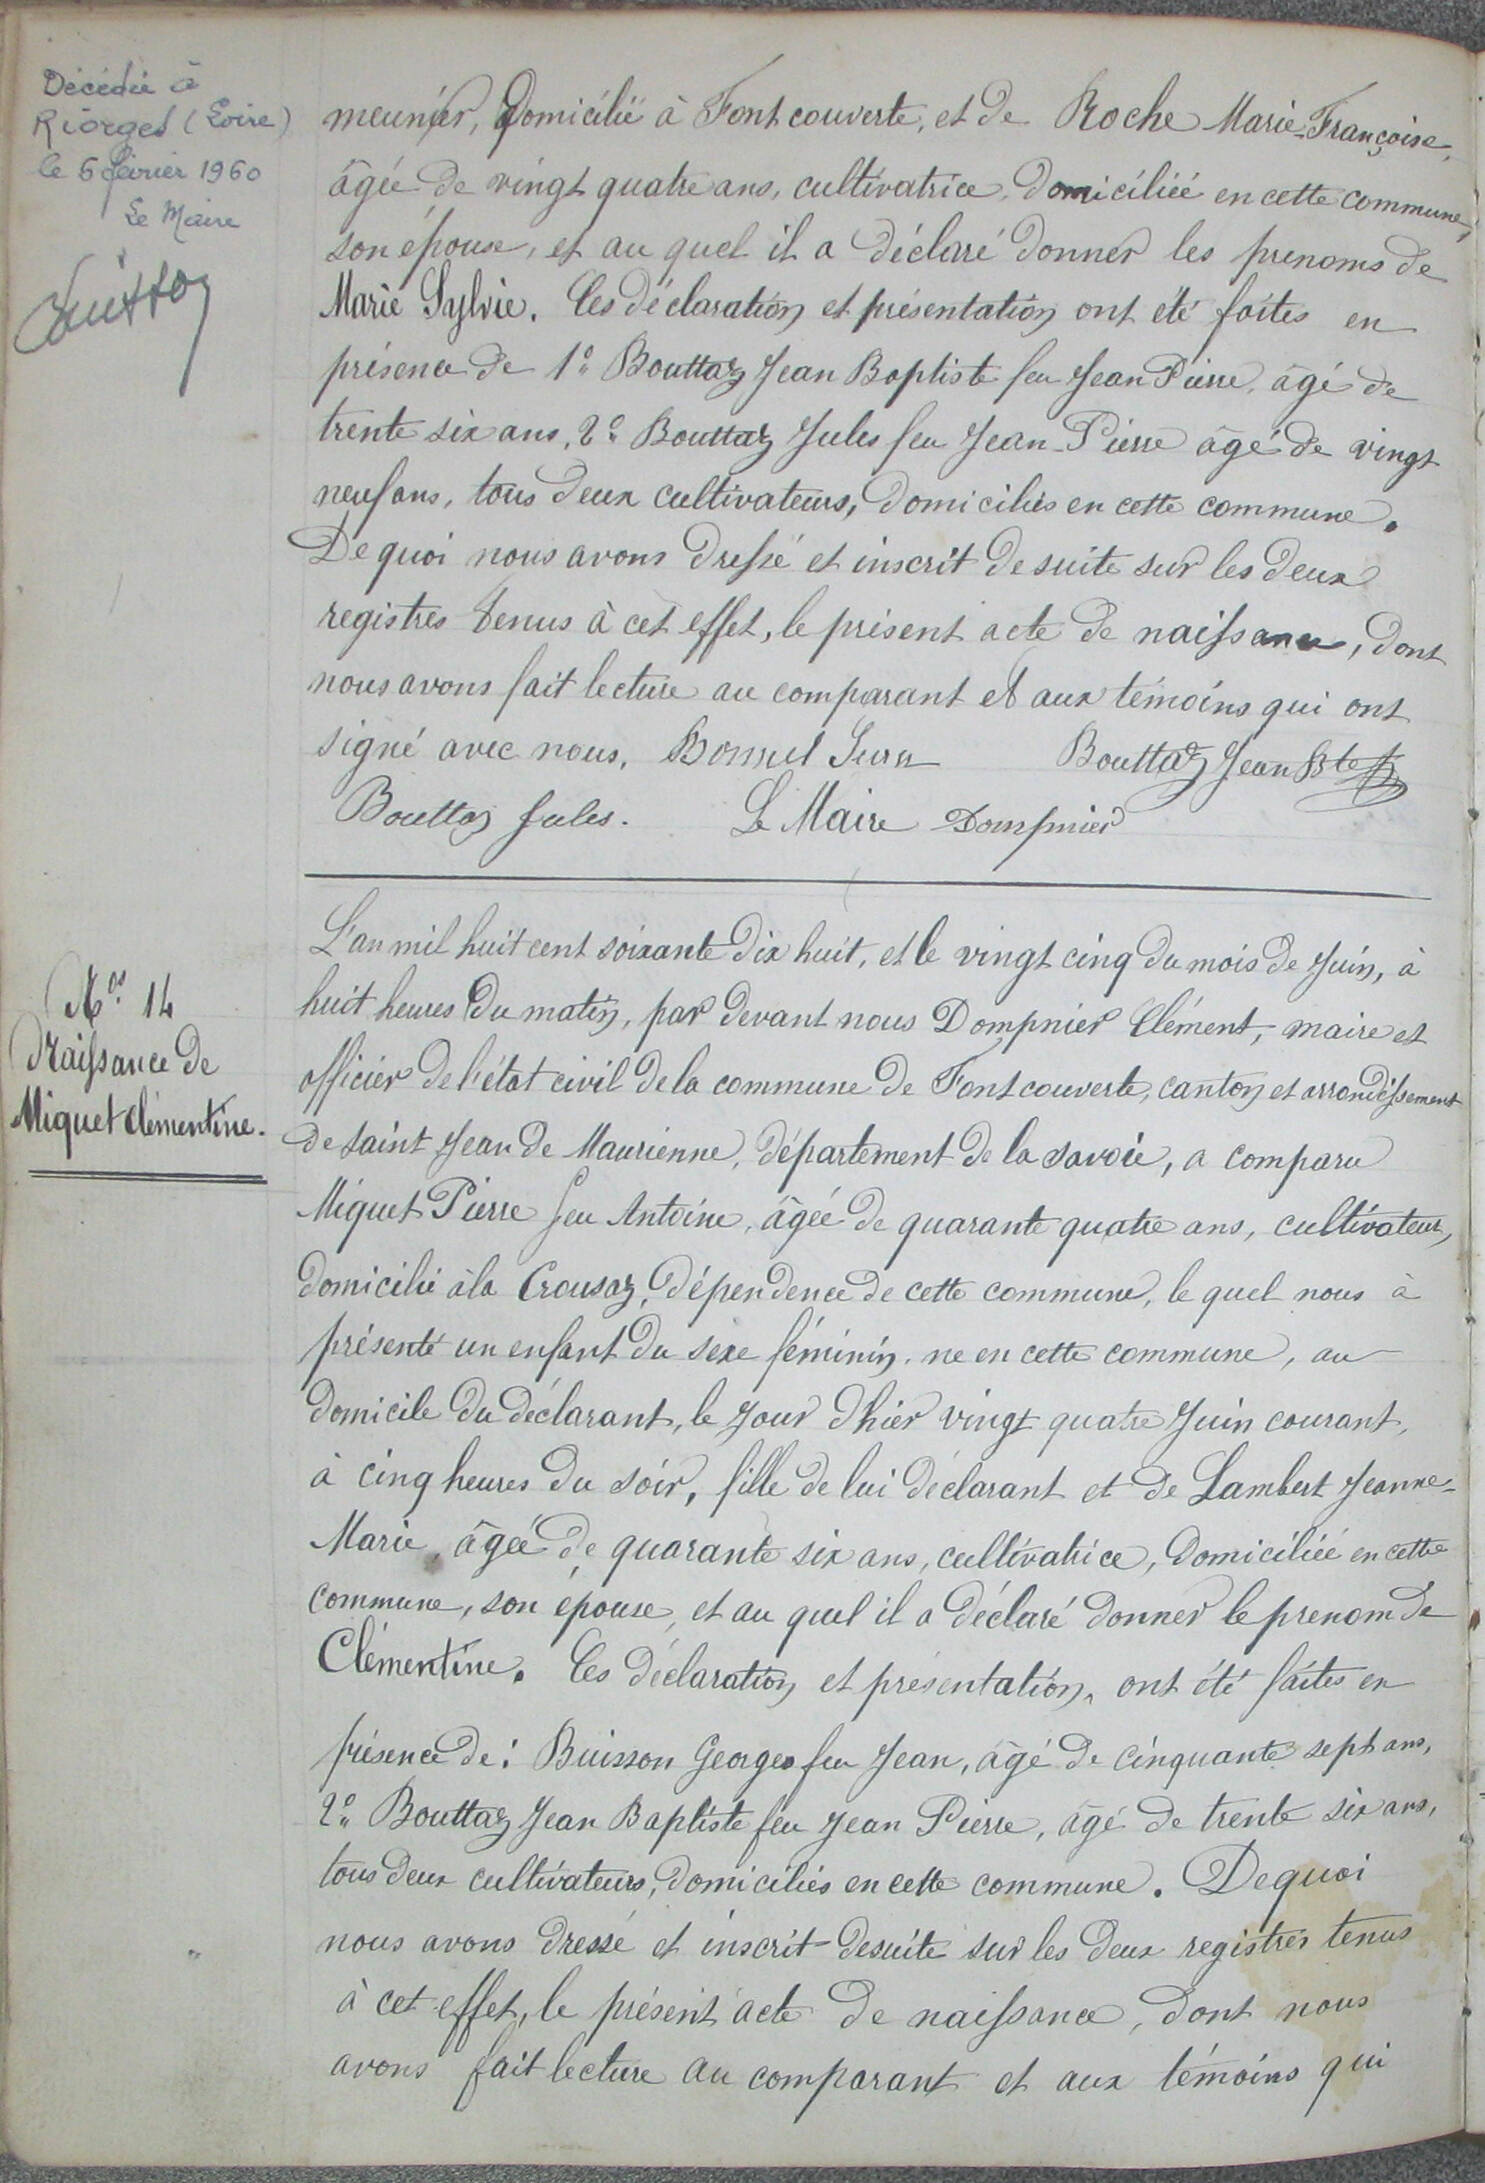 Décédée à
Riorges (Loire)
le 6 février 1960
Le Maire
meunier, domicilié à Fontcouverte, et de Roche Marie-Françoise,
âgée de vingt quatre ans, cultivatrice, domiciliée en cette commune,
son épouse, et au quel il a déclaré donner les prenoms de
Marie Sylvie. Ces déclaration et présentation ont été faites en
présence de 1º Bouttaz Jean Baptiste feu Jean Pierre, âgé de
trente six ans, 2º Bouttaz Jules feu Jean-Pierre âgé de vingt
neuf ans, tous deux cultivateurs, domiciliés en cette commune.
De quoi nous avons dressé et inscrit de suite sur les deux
registres tenus à cet effet, le présent acte de naissance, dont
nous avons fait lecture au comparant et aux témoins qui ont
signé avec nous. Bonnel Bouttaz Jean Bte
Bouttaz Jules. Le Maire Dompnier
Nos 14
Naissance de
Miquet Clémentine.
L'an mil huit cent soixante dix huit, et le vingt cinq du mois de Juin, à
huit heures du matin, par devant nous Dompnier Clément, maire et
officier de l'état civil de la commune de Fontcouverte, canton et arrondissement
de saint Jean de Maurienne, département de la savoie, a comparu
Miquet Pierre feu Antoine, âgée de quarante quatre ans, cultivateur,
domicilié à la Crousaz, dépendence de cette commune, le quel nous à
présenté un enfant du sexe féminin, ne en cette commune, au
domicile du déclarant, le jour dhier vingt quatre Juin courant,
à cinq heures du soir, fille de lui déclarant et de Lambert Jeanne-
Marie, âgée de quarante six ans, cultivatrice, domiciliée en cette
commune, son épouse, et au quel il a déclaré donner le prenom de
Clémentine. Ces déclaration et présentation, ont été faites en
présence de: Buisson Georges feu Jean, âgé de cinquante sept ans,
2º Bouttaz Jean Baptiste feu Jean Pierre, âgé de trente six ans,
tous deux cultivateurs, domiciliés en cette commune. De quoi
nous avons dressé et inscrit desuite sur les deux registres tenus
à cet effet, le présent acte de naissance, dont nous
avons fait lecture au comparant et aux témoins qui